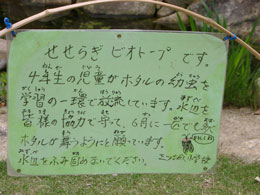 せせらぎビオトープです。
4年生の児童がホタルの幼虫を
学習の一環で放流しています。水辺を
皆様の協力で守って、6月に一匹でも多く
ホタルが舞うようにと願っています。
水辺をふみ固めないでください。